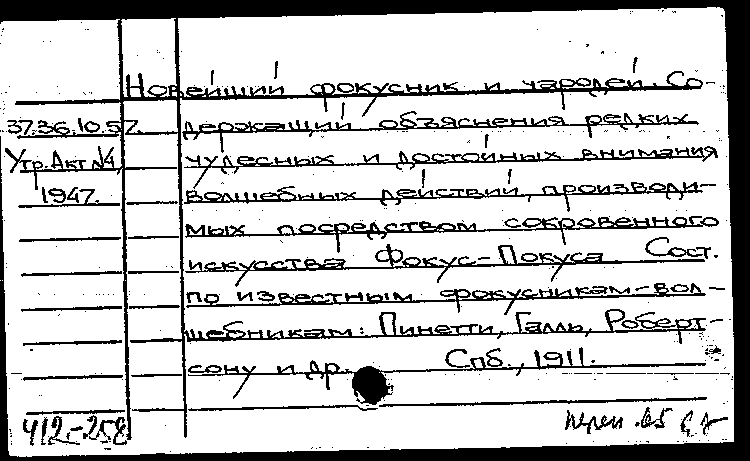 Новейший фокусник и чародей. Со-
37.36.10.57. держащий объяснения редких
Утр. Акт №4, чудесных и достойных внимания
1947. волшебных действий, производи-
мых посредством сокровенного
искусства Фокус-Покуса. Сост.
по известным фокусникам-вол-
шебникам: Пинетти, Галль, Роберт-
сону и др. Спб., 1911.
412-258